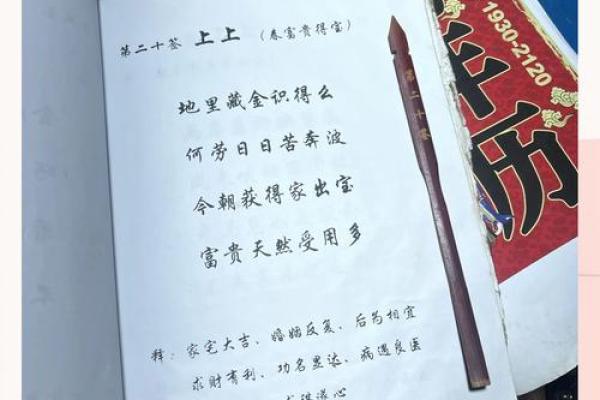 第二十签 上上 (春富贵得宝)
地里藏金识得么
何劳日日苦奔波
今朝获得家出宝
富贵天然受用多
释：家宅大吉、婚姻反复、后为相宜
求财有利、功名显达、病遇良医
第二十签
1930-2120
年历